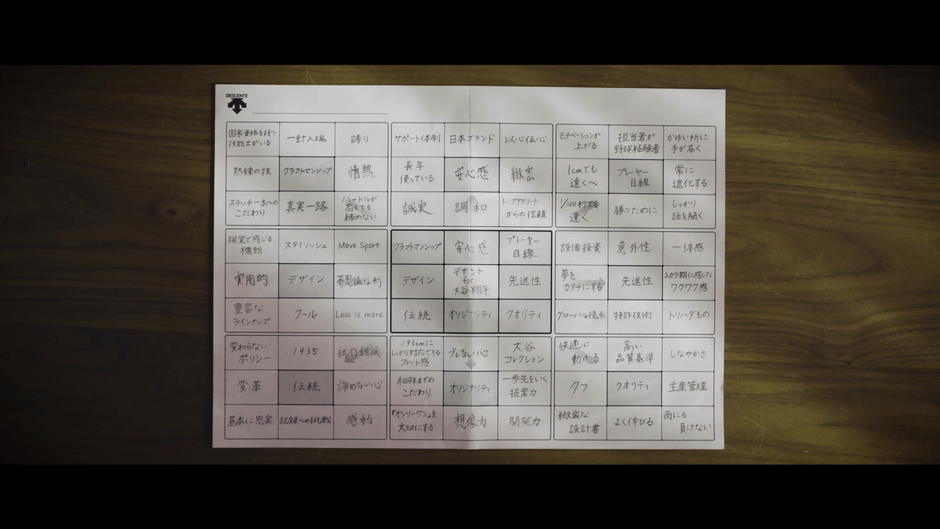 DESCENTE
国家資格を持つ
技能士がいる
一針入魂
誇り
サポート体制
日本ブランド
以心伝心
モチベーションが
上がる
担当者が
野球経験者
かゆい所に
手が届く
熟練の技
クラフトマンシップ
情熱
長年
使っている
安心感
緻密
1cmでも
遠くへ
プレーヤー
目線
常に
進化する
ステッチ一本への
こだわり
真実一路
ハードルが
高くても
諦めない
誠実
調和
トップアスリート
からの信頼
1/100秒でも
速く
勝つために
しっかり
話を聞く
視覚で感じる
機能
スタイリッシュ
Move Sport
クラフトマンシップ
安心感
プレーヤー
目線
設備投資
意外性
一体感
実用的
デザイン
不思議な形
デザイン
デサント
for
大谷翔平
先進性
夢を
カタチにする
先進性
ワクワク感
豊富な
ラインナップ
クール
Less is more
伝統
オリジナリティ
クオリティ
グローバル視点
特許技術
トリハダもの
変わらない
ポリシー
1935
試行錯誤
193cmに
フィット感
ブレない心
大谷
コレクション
快適に
動ける
高い
品質基準
しなやかさ
変革
伝統
諦めない心
細部までの
こだわり
オリジナリティ
一歩先をいく
提案力
タフ
クオリティ
生産管理
基本に忠実
記録への挑戦
感動
「オンリーワン」を
大切にする
想像力
開発力
緻密な
設計書
よく伸びる
雨にも
負けない